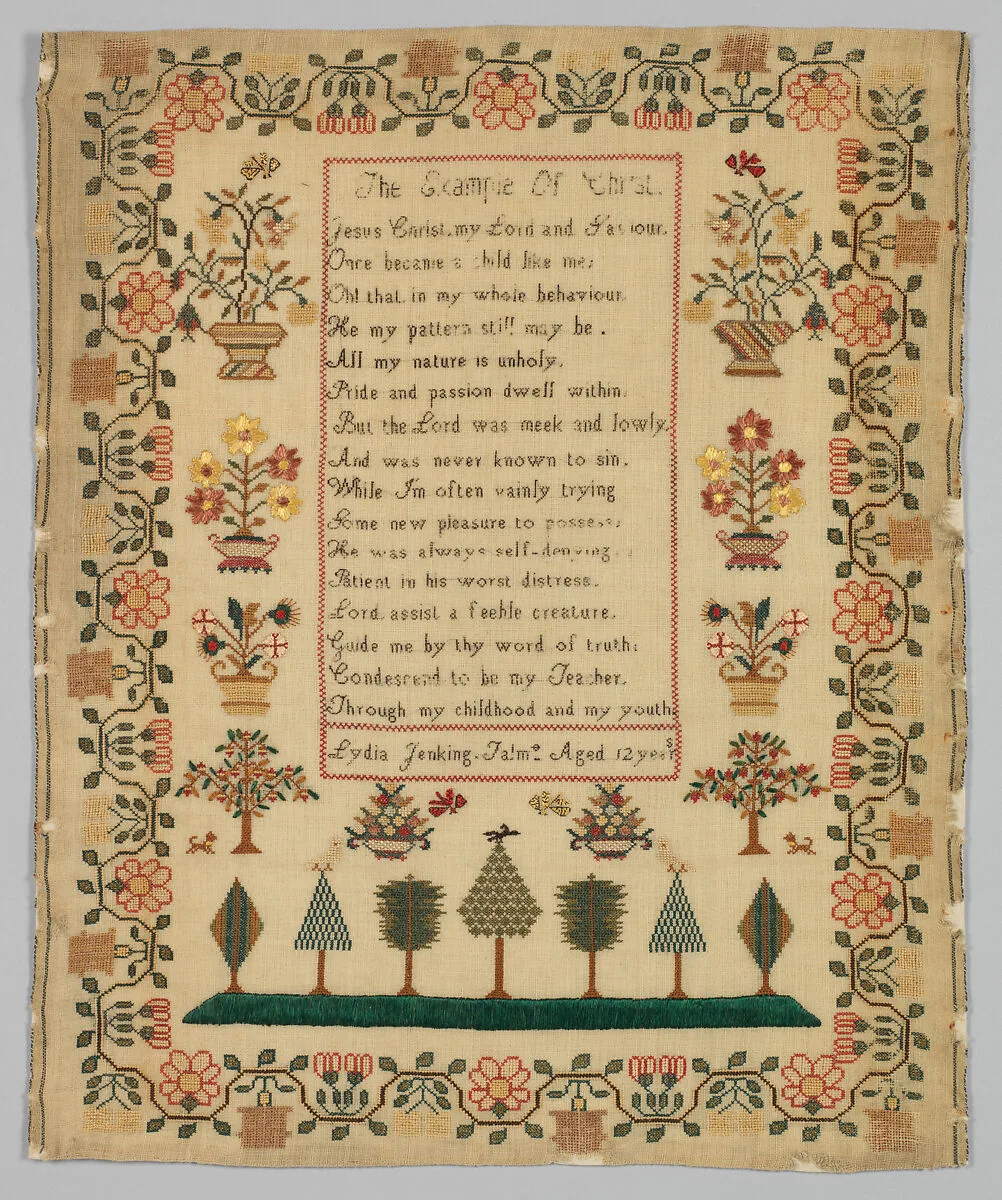 The Example Of Christ.
Jesus Christ, my Lord and Saviour.
Once became a child like me;
Oh! that in my whole behaviour.
He my pattern still may be.
All my nature is unholy.
Pride and passion dwell within.
But the Lord was meek and lowly.
And was never known to sin.
While I'm often vainly trying
Some new pleasure to possess;
He was always self-denying.
Patient in his worst distress.
Lord assist a feeble creature.
Guide me by thy word of truth:
Condescend to be my Teacher.
Through my childhood and my youth
Lydia Jenking. Aged 12 years